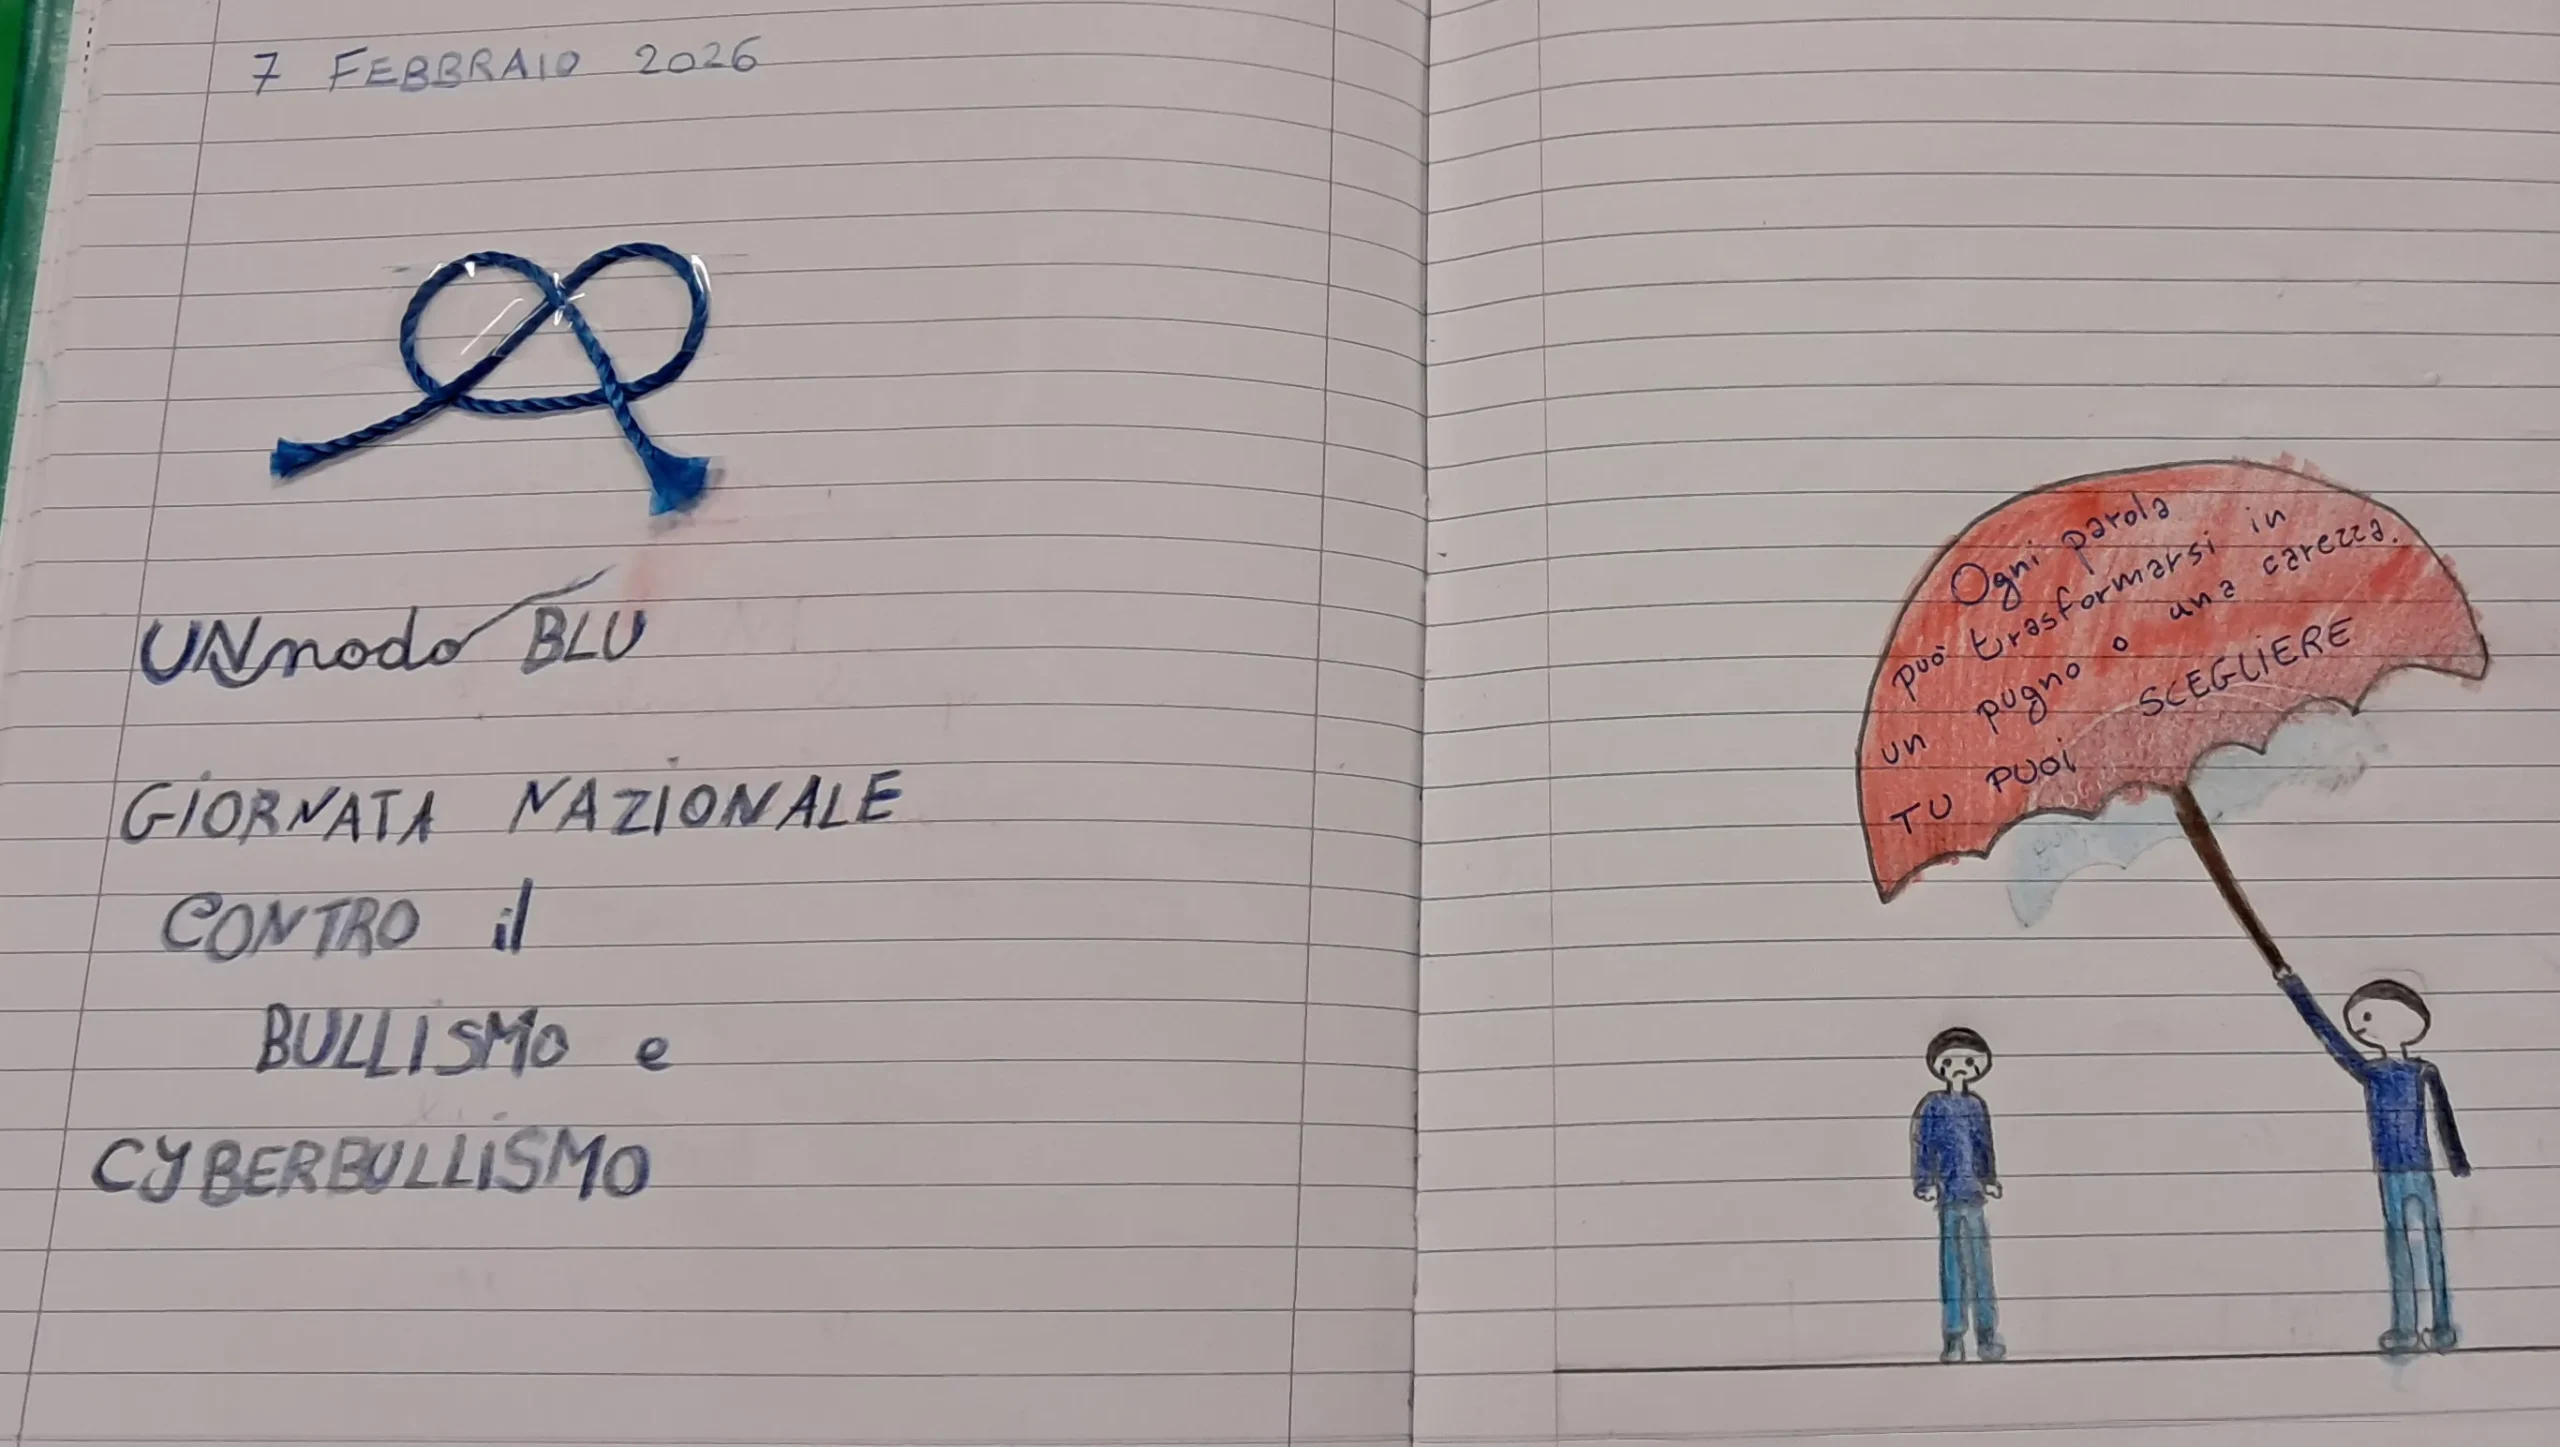 7 FEBBRAIO 2026
UN nodo BLU
GIORNATA NAZIONALE
CONTRO il
BULLISMO e
CYBERBULLISMO
Ogni parola
può trasformarsi in
un pugno o una carezza.
TU PUOI SCEGLIERE